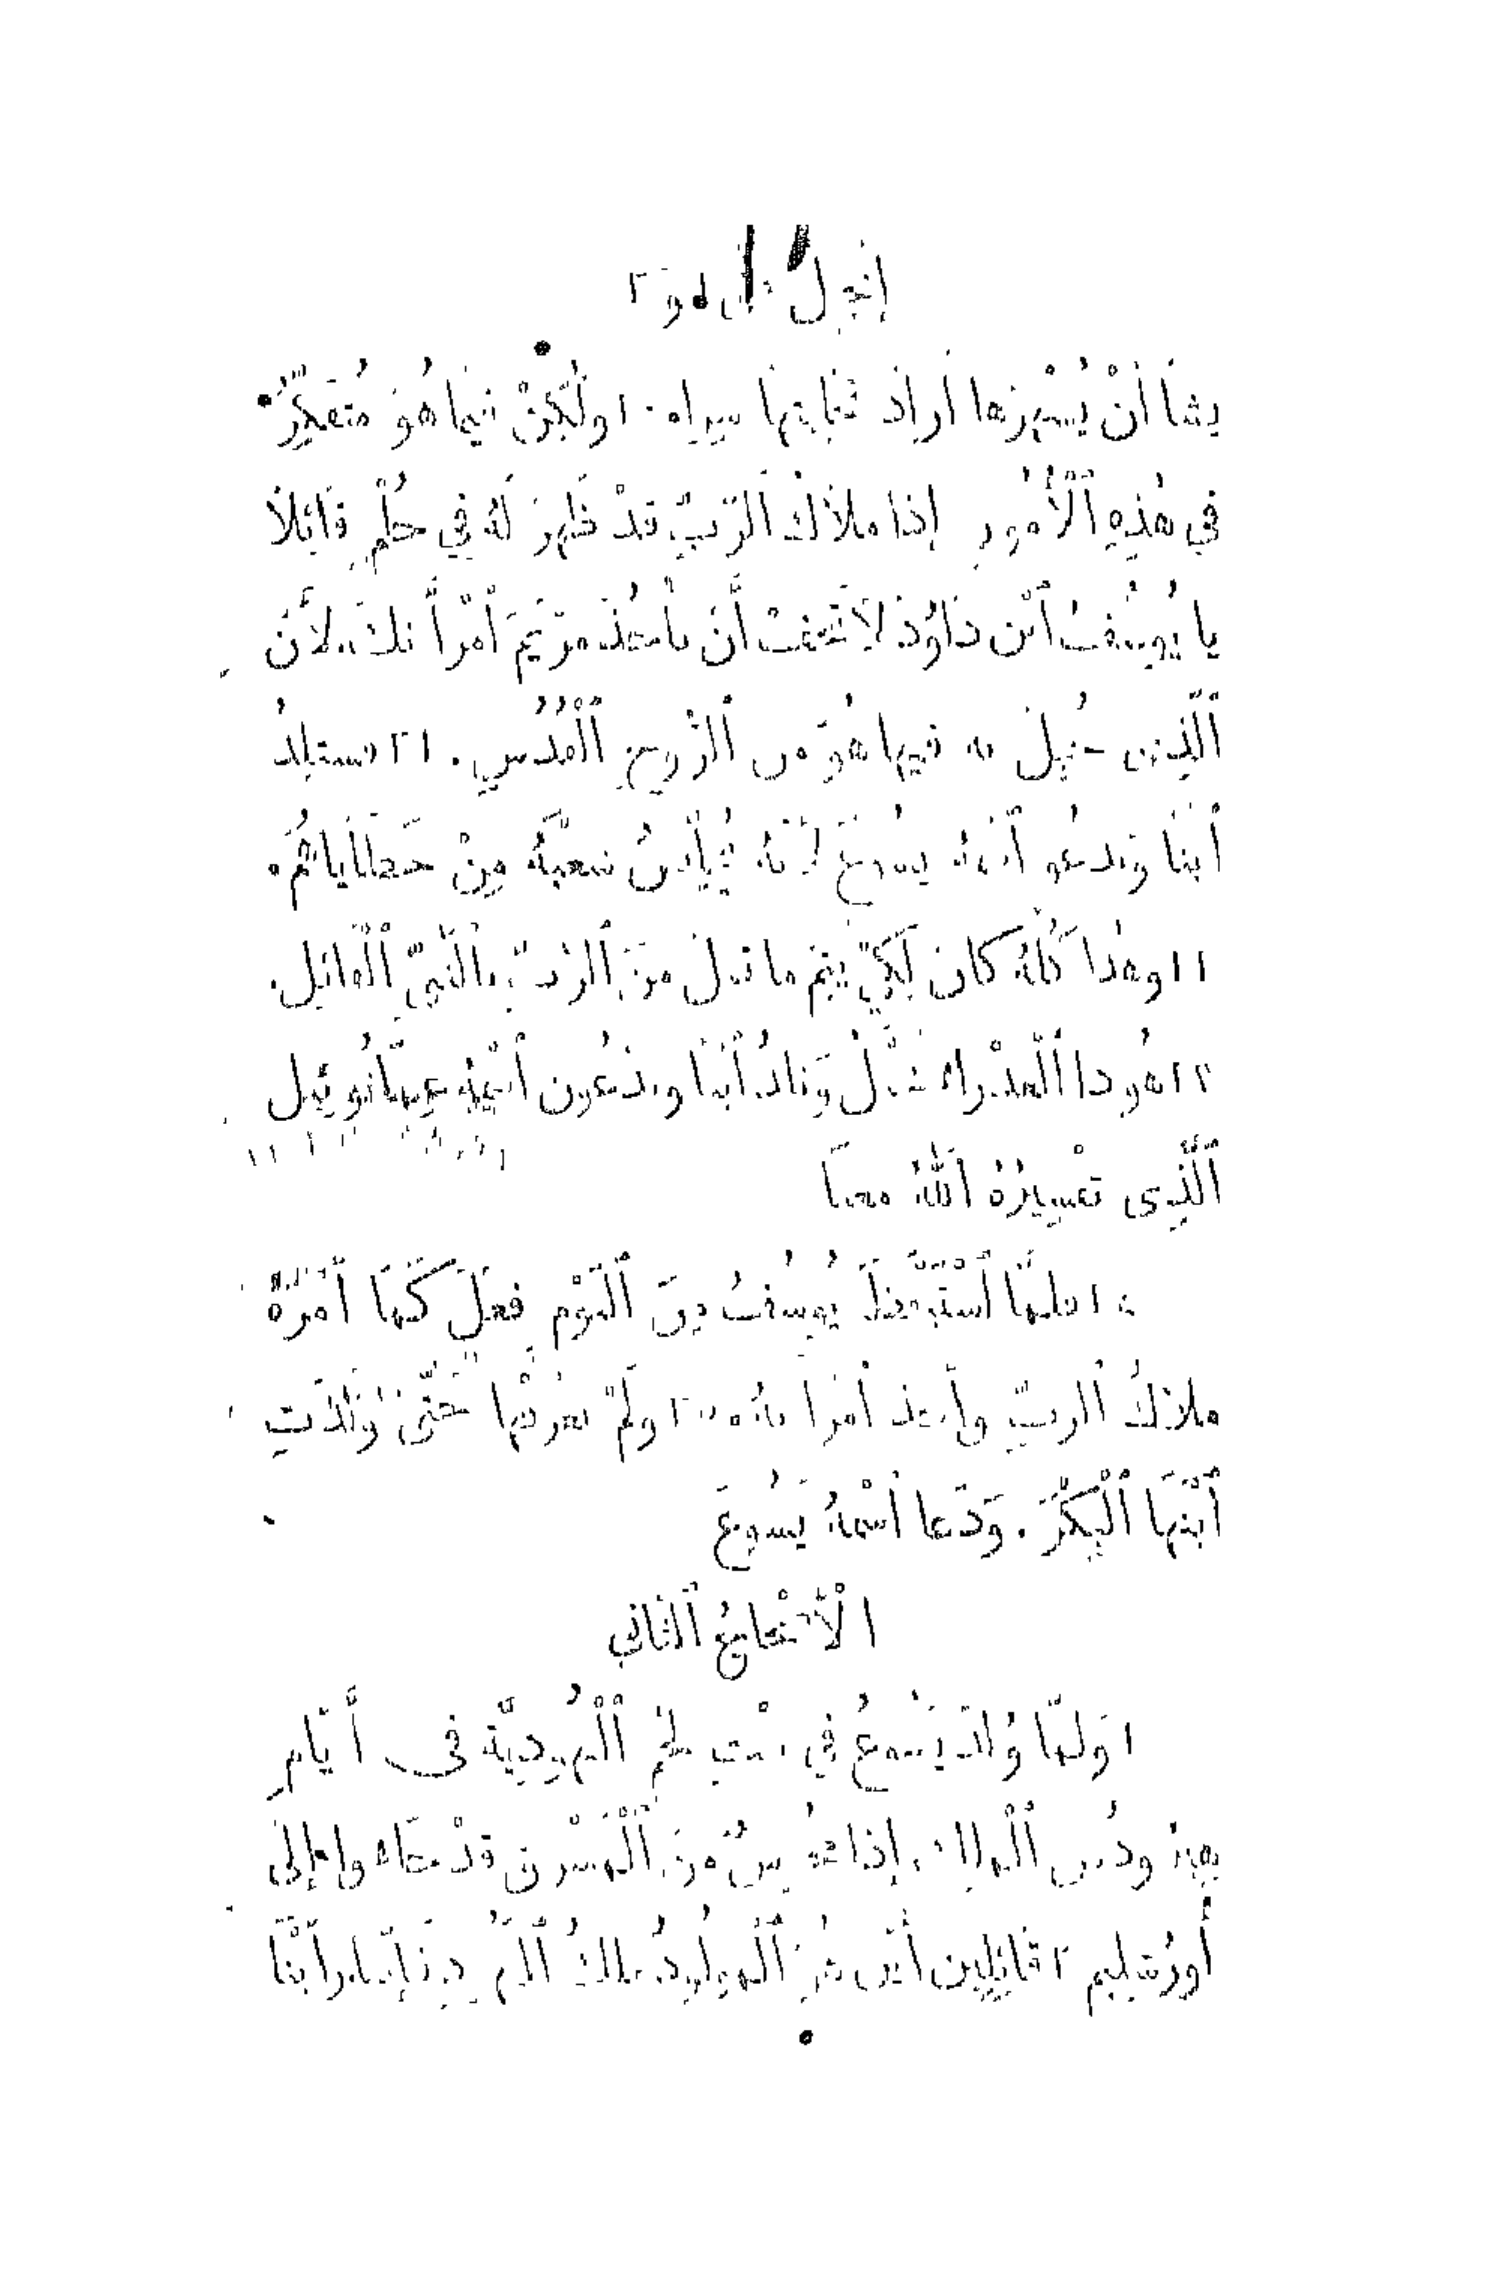 إنجيل متى ١ و ٢
يشأ أن يُشهرها أراد تخليتها سرا. ولٰكن فيما هو متفكّرٌ
في هٰذه ٱلأمور إذا ملاك ٱلربّ قدْ ظهر له في حُلْمٍ قائلا
يا يُوسُفُ ٱبن داوُد لا تخف أن تأخذ مرْيم ٱمْرأتك. لأن
ٱلّذي حُبِل به فيها هُو من ٱلرُّوح ٱلْقُدُس. ٢١ فستلدُ
ٱبنا وتدعو ٱسمهُ يسُوع لأنّهُ يُخلّصُ شعبهُ مِنْ خطاياهُم.
وهٰذا كُلّهُ كان لكيْ يتمّ ما قيل من ٱلرّبّ بٱلنّبيّ ٱلْقائل.
هُوذا ٱلْعذْراء تحْبلُ وتلدُ ٱبنا ويدْعُون ٱسْمهُ عِمّانُوئيل
ٱلّذي تفْسِيرُهُ ٱللهُ معنا
فلمّا ٱسْتيْقظ يُوسُفُ من ٱلنّوْم فعل كما أمرهُ
ملاكُ ٱلربّ وأخذ ٱمْرأتهُ. ولمْ يعْرفْها حتّى ولدت
ٱبْنها ٱلْبِكْر. ودعا ٱسْمهُ يسُوع
الْأصْحاحُ ٱلثاني
١ ولمّا وُلد يسُوعُ في بيْت لحْمِ ٱلْيهُوديّة في أيّامِ
هيرُودُس ٱلْملك. إذا مجُوسٌ من ٱلْمشْرق قدْ جاءوا إلى
أُورُشليم ٢ قائلين أيْن هُو ٱلْموْلُودُ ملكُ ٱلْيهُود. فإنّنا رأيْنا